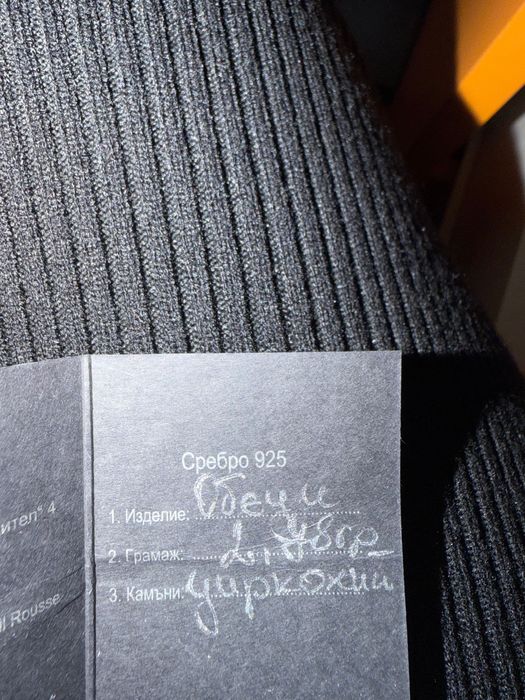 Сребро 925
1. Изделие: Обеци
ител" 4
2. Грамаж: 2,48гр
3. Камъни: циркохии
ll Rousse